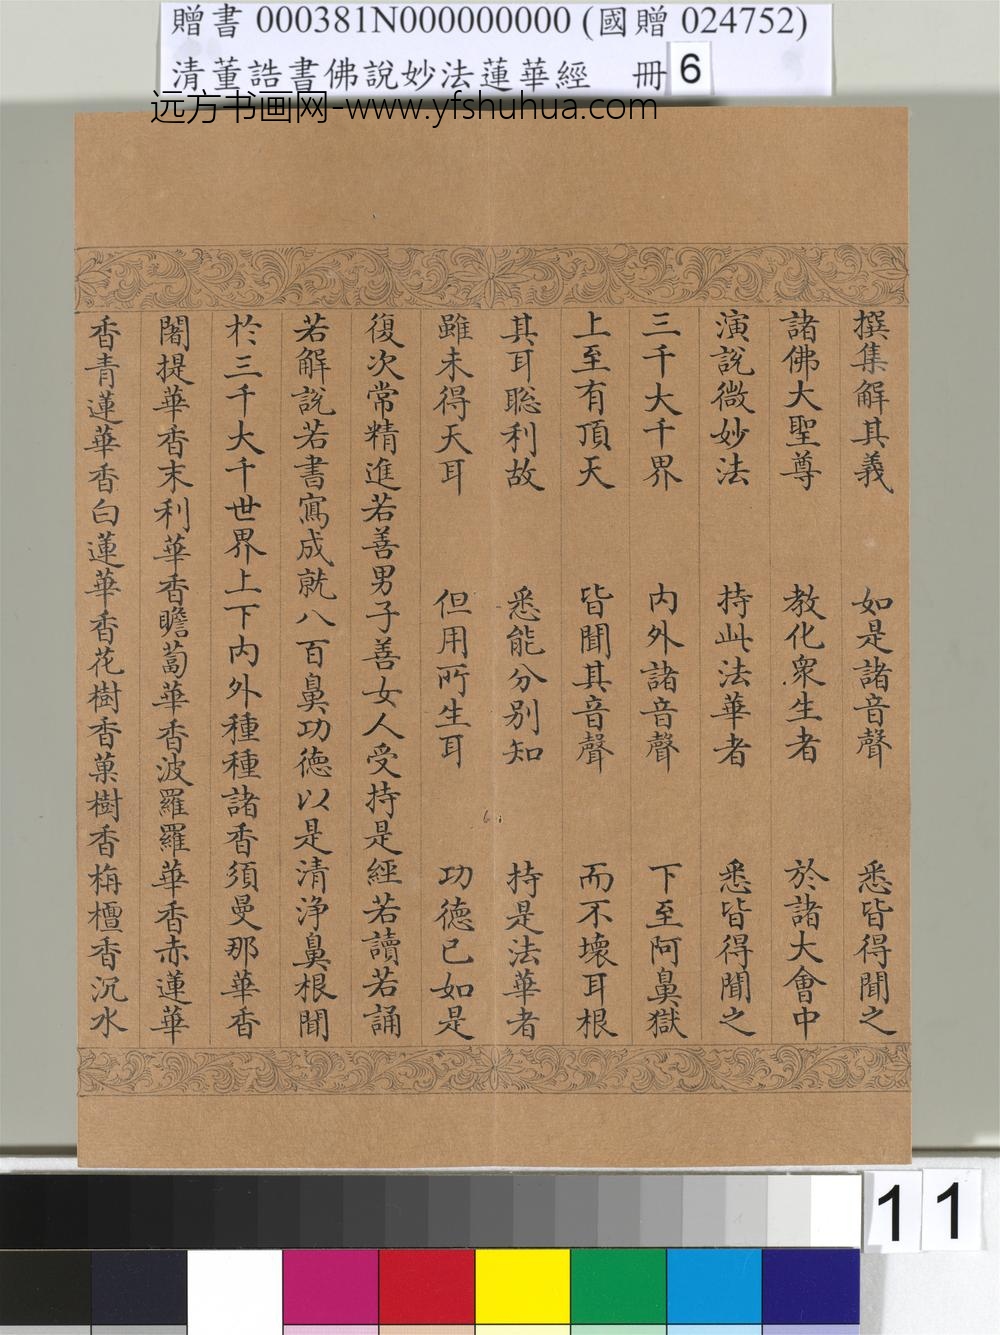 贈書 000381N000000000 (國贈 024752)
清董誥書佛說妙法蓮華經 冊 6
远方书画网-www.yfshuhua.com
撰集解其義 如是諸音聲 悉皆得聞之
諸佛大聖尊 教化眾生者 於諸大會中
演說微妙法 持此法華者 悉皆得聞之
三千大千界 內外諸音聲 下至阿鼻獄
上至有頂天 皆聞其音聲 而不壞耳根
其耳聡利故 悉能分別知 持是法華者
雖未得天耳 但用所生耳 功德已如是
復次常精進若善男子善女人受持是經若讀若誦
若解說若書寫成就八百鼻功德以是清淨鼻根聞
於三千大千世界上下內外種種諸香須曼那華香
闍提華香末利華香瞻蔔華香波羅羅華香赤蓮華
香青蓮華香白蓮華香花樹香菓樹香栴檀香沉水
6
11